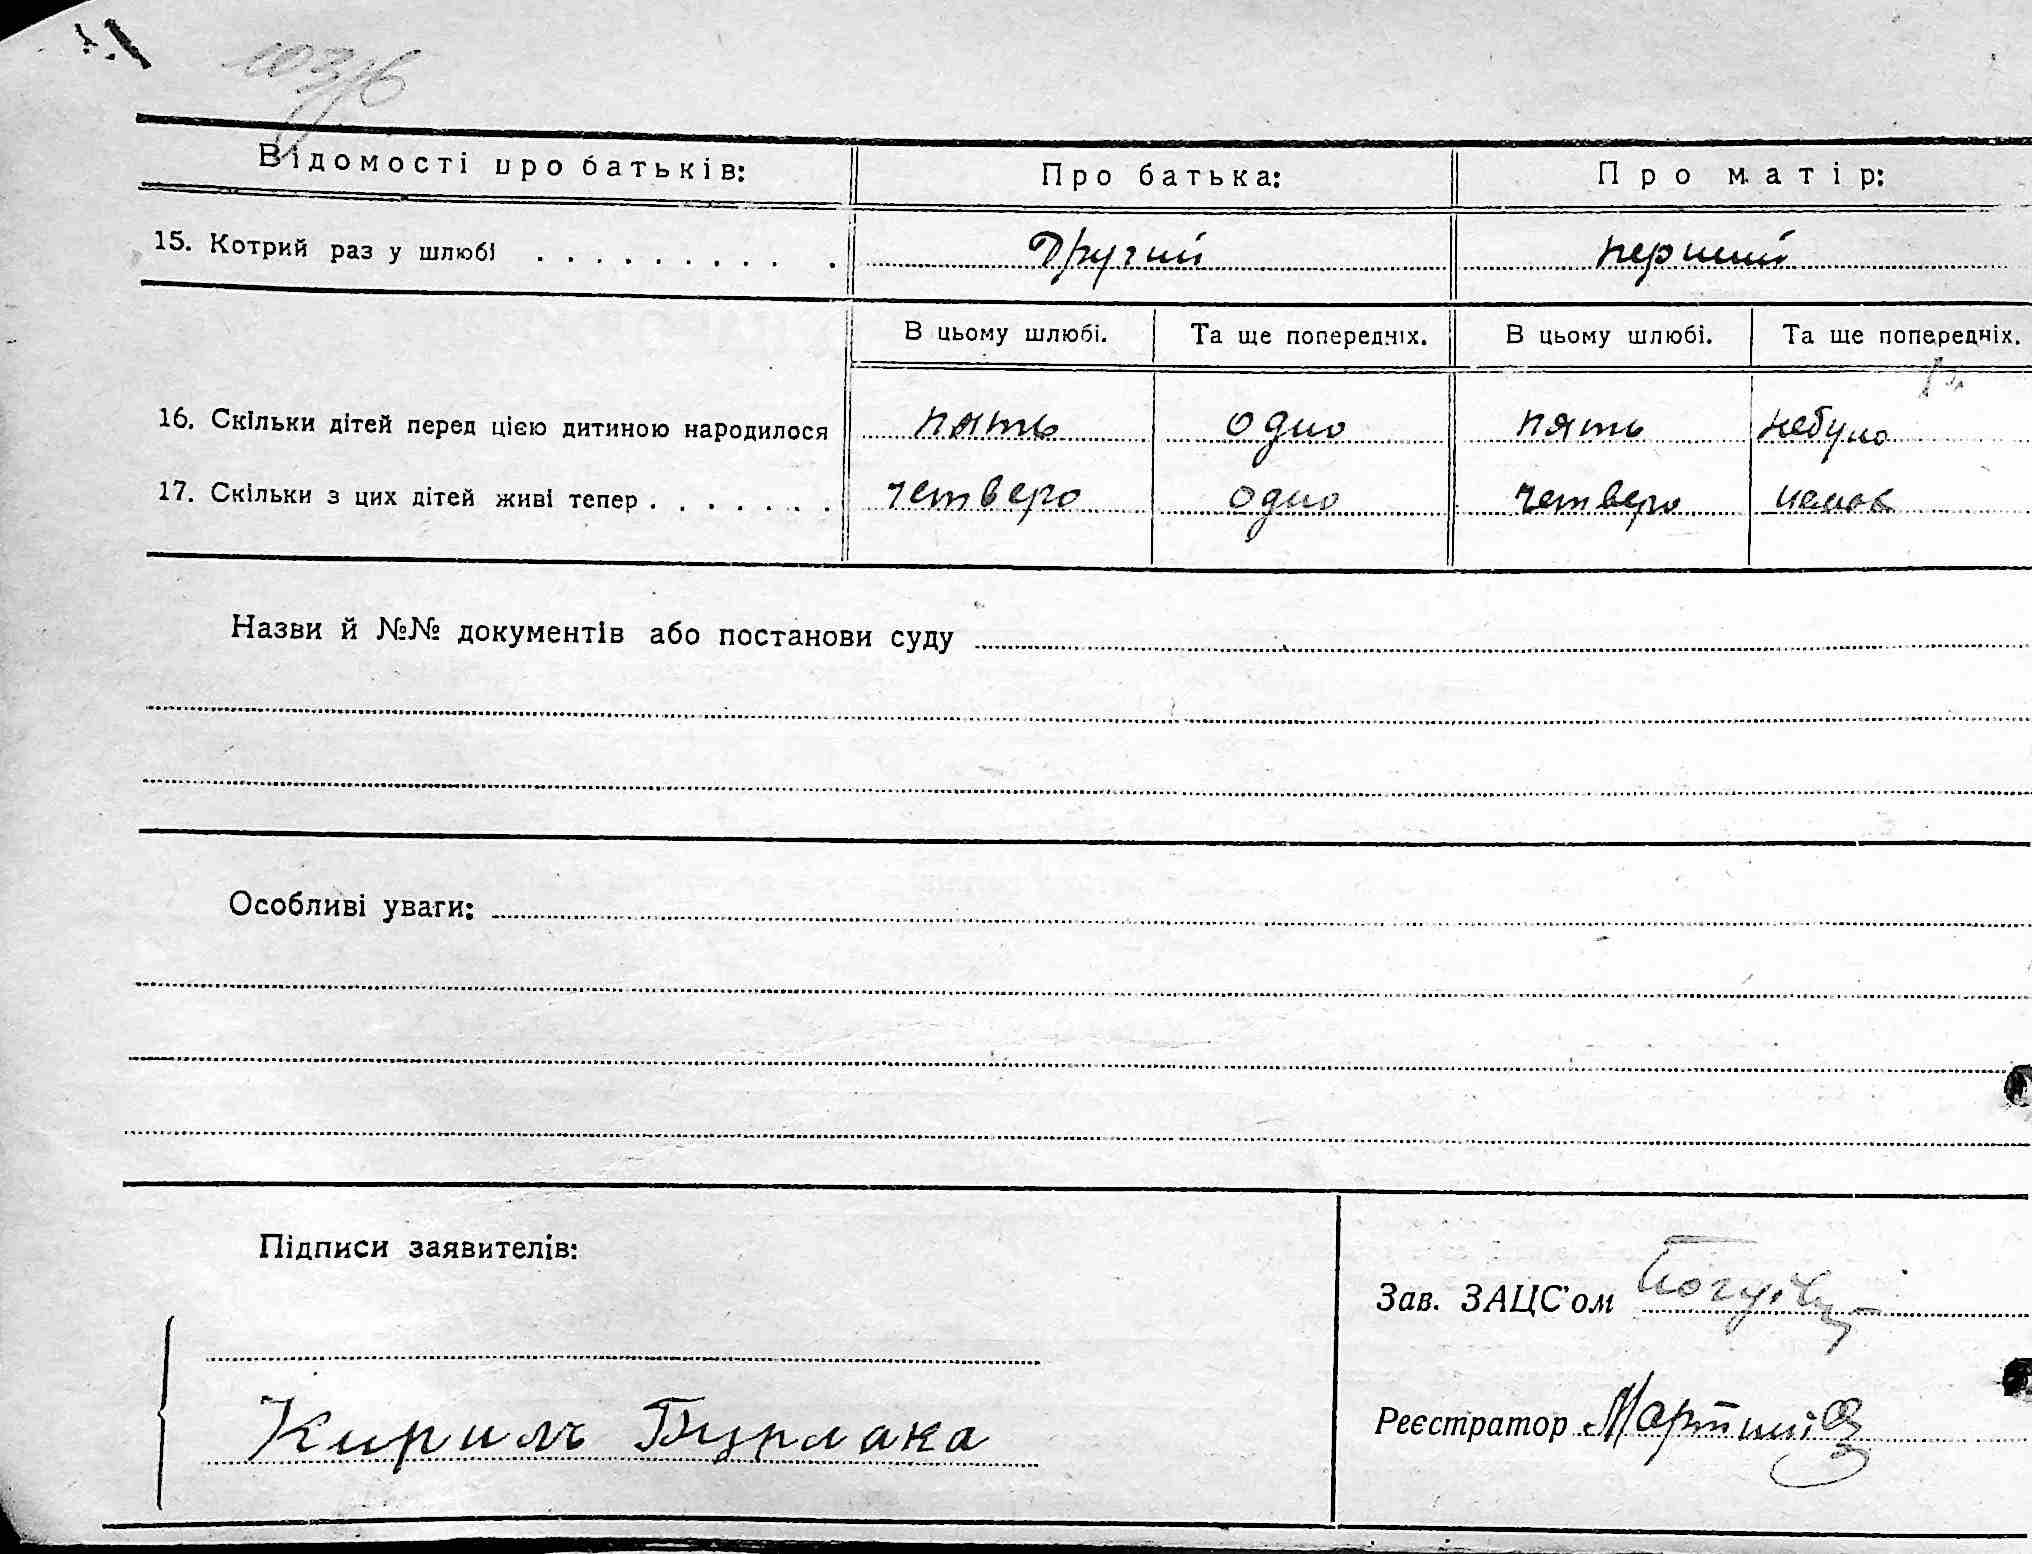 Відомості про батьків: Про батька: Про матір:
15. Котрий раз у шлюбі . . . . . . . . . . . Другий перший
В цьому шлюбі. Та ще попередніх. В цьому шлюбі. Та ще попередніх.
16. Скільки дітей перед цією дитиною народилося пять одно пять небуло
17. Скільки з цих дітей живі тепер . . . . . . . четверо одно четверо немає
Назви й №№ документів або постанови суду
Особливі уваги:
Підписи заявителів:
Зав. ЗАЦС'ом
Кирилъ Бурлака
Реєстратор